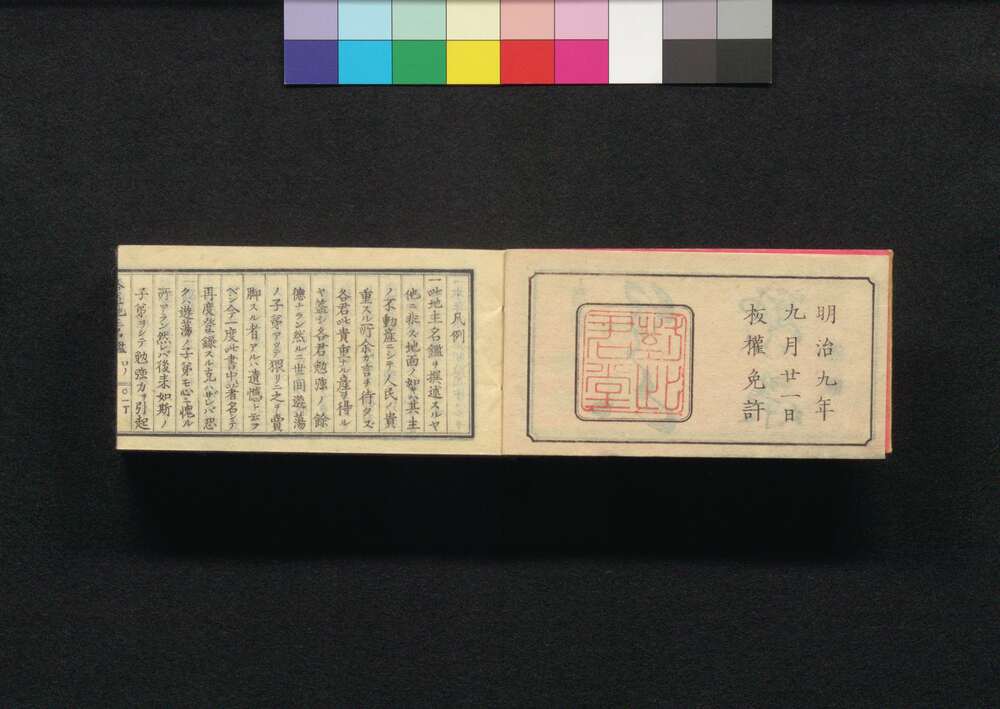 明治九年
九月廿一日
板權免許
凡例
一此地主名鑑ヲ撰述スルヤ
他ニ非ス地面ノ
ノ不動産ニシテ人民ノ貴
重スル所余カ言ヲ待タズ
各君此貴重ナル産ヲ得ル
ヤ盖シ各君勉強ノ餘
德ナラン然ルニ世間遊蕩
ノ子弟アリテ猥リニ之ヲ賣
脚スル者アルハ遺憾ト云フ
ベシ今一度此書中ニ著名シテ
再度登録スル克ハザレバ恐
クハ遊蕩ノ子弟モ心ニ愧ル
所アラン然レバ後来如斯ノ
子弟ヲシテ勉強力ヲ引起